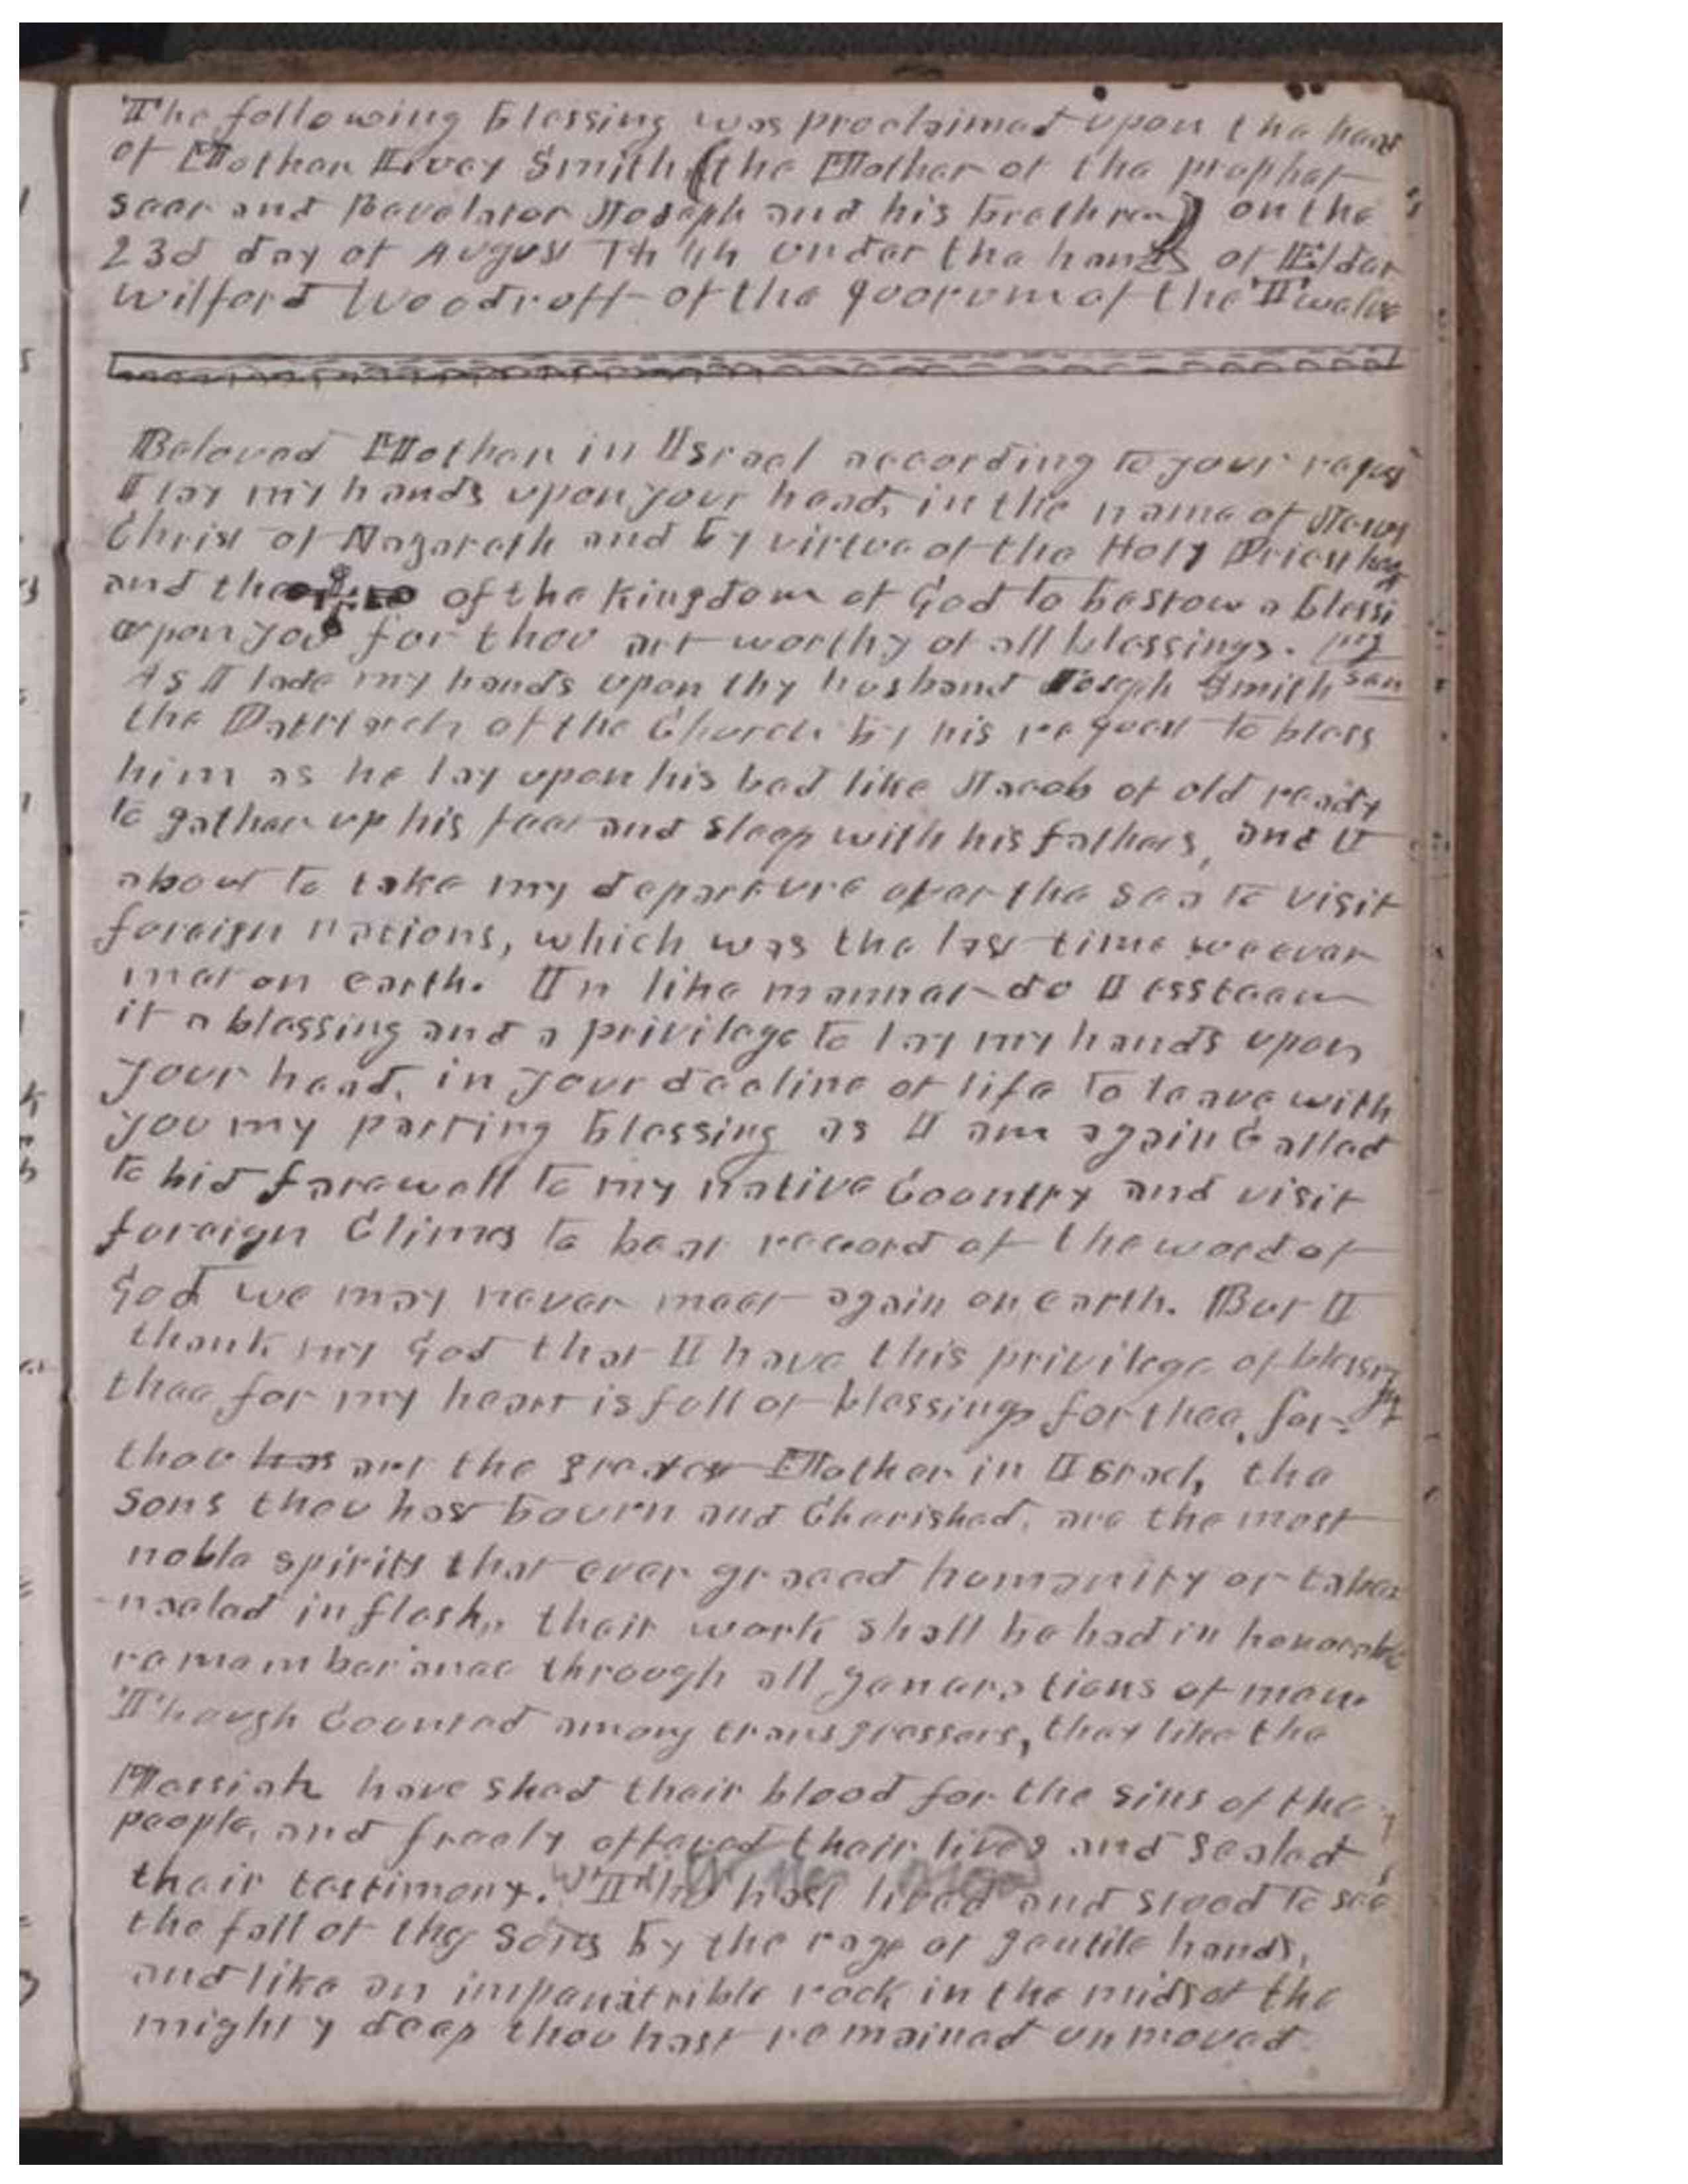 The following blessing was proclaimed upon the head
of Mother Lucy Smith (the Mother of the prophet
seer and Revelator Joseph and his brethren) on the
23d day of August 1844 under the hands of Elder
Wilford Woodruff of the quorum of the Twelve
Beloved Mother in Israel according to your request
I lay my hands upon your head, in the name of Jesus
Christ of Nazareth and by virtue of the Holy Priesthood
and the of the Kingdom of God to bestow a blessi
upon you for thou art worthy of all blessings. ng
As I lade my hands upon thy husband Joseph Smith sen
the Patriarch of the Church by his request to bless
him as he lay upon his bed like Jacob of old ready
to gather up his feet and sleep with his fathers, and I
about to take my departure over the sea to visit
foreign nations, which was the last time we ever
met on earth. In like manner do I essteem
it a blessing and a privilege to lay my hands upon
your head, in your decline of life to leave with
you my parting blessing as I am again Called
to bid farewell to my native Country and visit
foreign Climes to bear record of the word of
God we may never meet again on earth. But I
thank my God that I have this privilege of blessing
thee for my heart is full of blessings for thee, for
thou has art the greatest Mother in Israel, the
sons thou hast bourn and Cherished, are the most
noble spirits that ever graced humanity or taber
-nacled in flesh, their work shall be had in honorable
rememberance through all generations of man
Though Counted among transgressers, they like the
Messiah have shed their blood for the sins of the
people, and freely offered their lives and sealed
their testimony. Thou hast lived and stood to see
the fall of thy sons by the rage of gentile hands,
and like an impenitrible rock in the midst of the
mighty deep thou hast remained unmoved